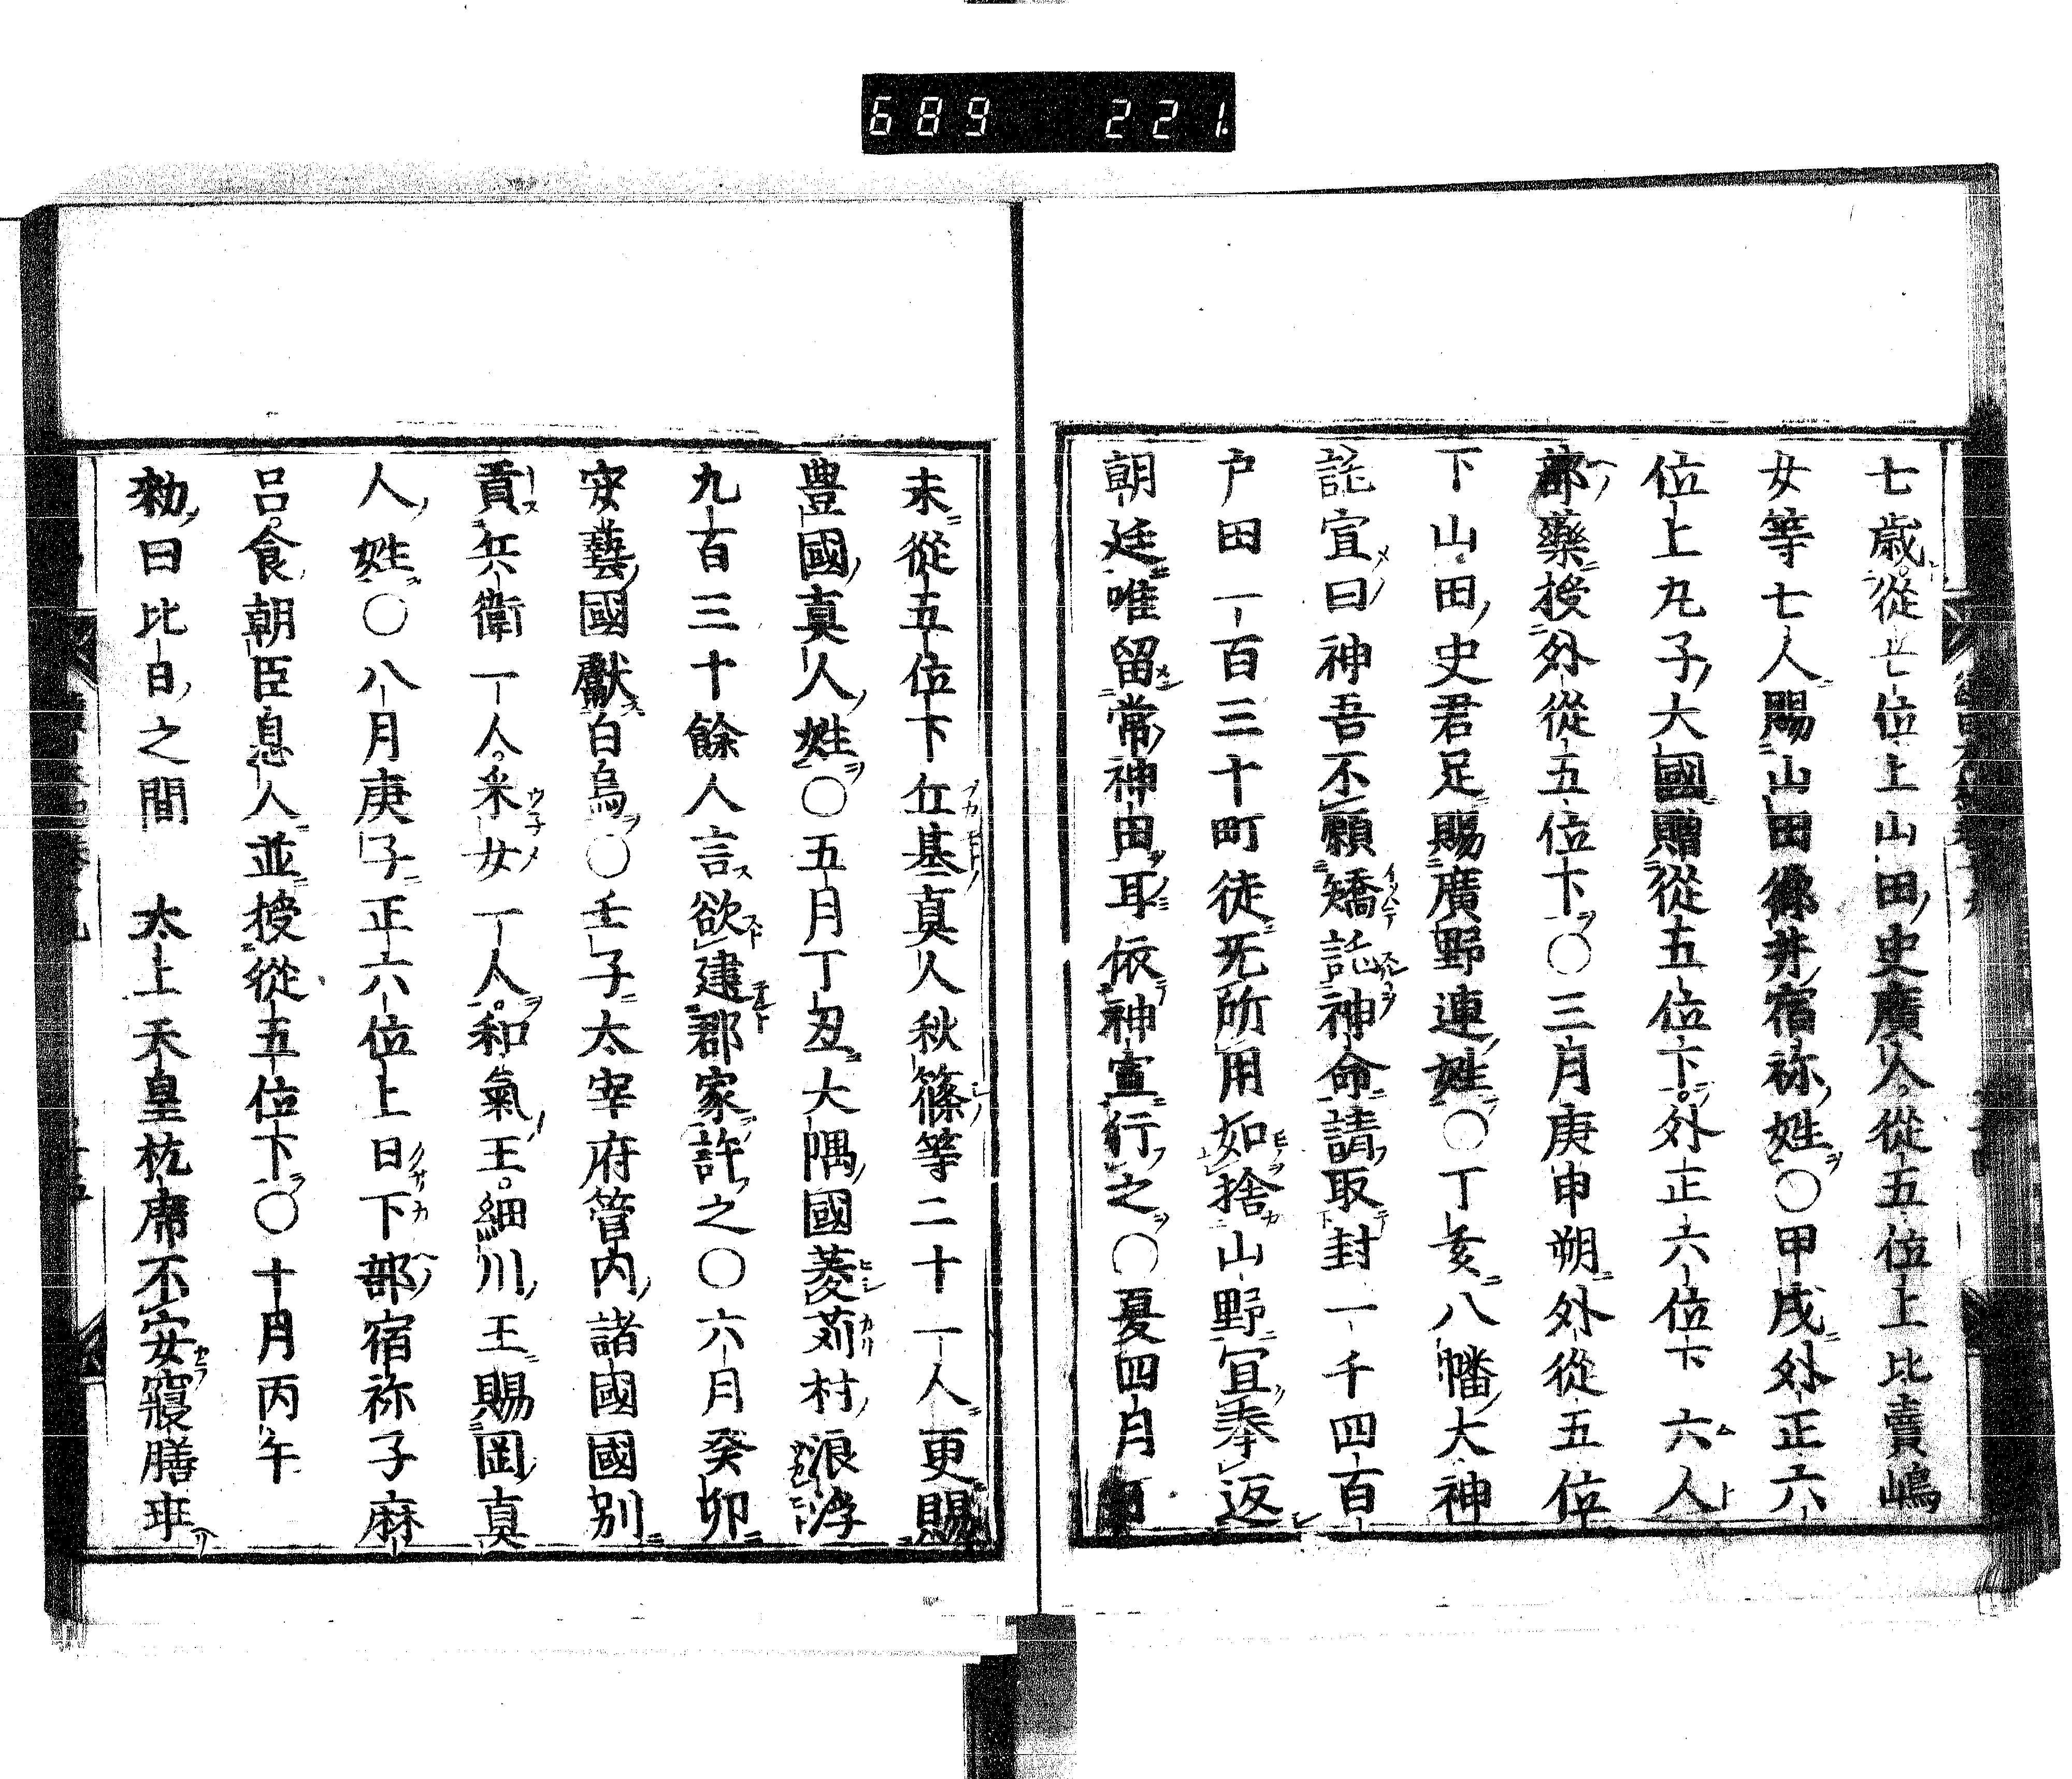 689 221.
七歳從七位上山田史廣人從五位上比賣嶋
女等七人賜山田御井宿祢姓〇甲戌外正六
位上丸子大國贈從五位下外正六位下六人
部藥授外從五位下〇三月庚申朔外從五位
下山田史君足賜廣野連姓〇丁亥八幡大神
託宣曰神吾不願矯託神命請取封一千四百
户田一百三十町徒无所用如捨山野宜奉返
朝廷唯留常神田耳依神宣行之〇夏四月丁
未從五位下丘基真人秋篠等二十一人更賜
豊國真人姓〇五月丁丑大隅國菱苅村浪浮
九百三十餘人言欲建郡家許之〇六月癸卯
安藝國獻白烏〇壬子太宰府管内諸國國別
貢兵衛一人采女一人和氣王細川王賜岡真
人姓〇八月庚子正六位上日下部宿祢子麻
呂食朝臣息人並授從五位下〇十月丙午
勅曰比日之間 太上天皇枕席不安寢膳班